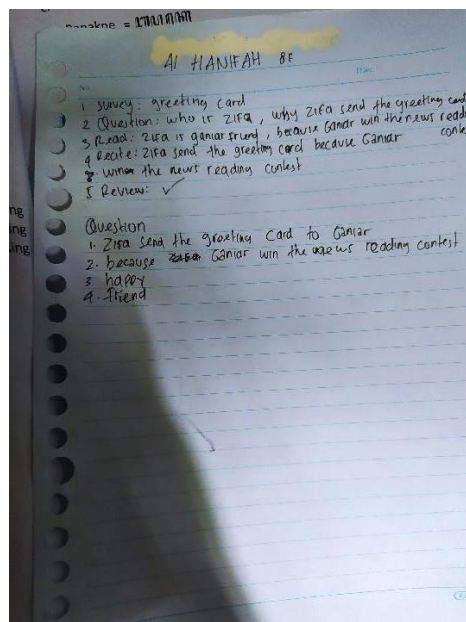 = 
AI HANIFAH 8F
No.
Date:
1 survey: greeting card
2 Question: who is Zifa, why Zifa send the greeting card
3 Read: Zifa is ganiar friend, because Ganiar win the news reading conte
4 Recite: Zifa send the greeting card because Ganiar
win the news reading contest
5 Review: ✓
Question
1. Zifa send the greeting Card to Ganiar
2. because Ganiar win the news reading contest
3 happy
4. friend
ng
ing
ing